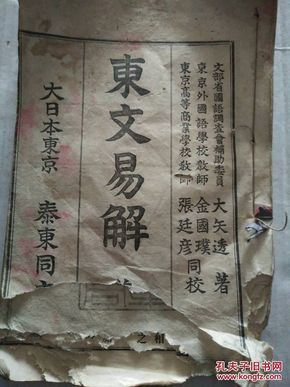 文部省國語調査會補助委員
東京外國語學校敎師
東京高等商業學校敎師
大矢透著
金國璞
張廷彦
同校
東文易解
大日本東京
泰東同文
之
孔夫子旧书网